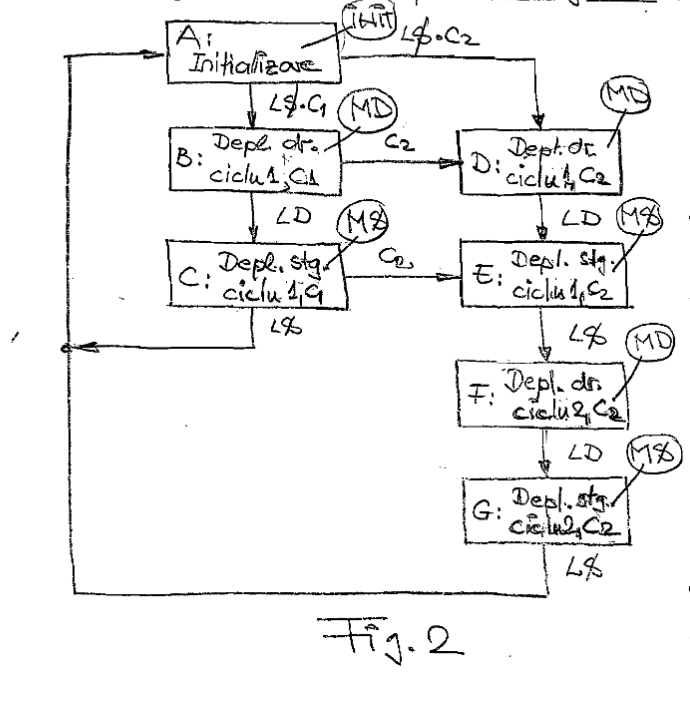 INIT
A:
Initializare
L$·C2
L$·C1
MD
MD
B:
Depl. dr.
ciclu 1, C1
C2
D:
Depl. dr.
ciclu 1, C2
LD
M$
LD
M$
C:
Depl. stg.
ciclu 1, C1
C2
E:
Depl. stg.
ciclu 1, C2
L$
L$
MD
F:
Depl. dr.
ciclu 2, C2
LD
M$
G:
Depl. stg.
ciclu 2, C2
L$
Fig. 2